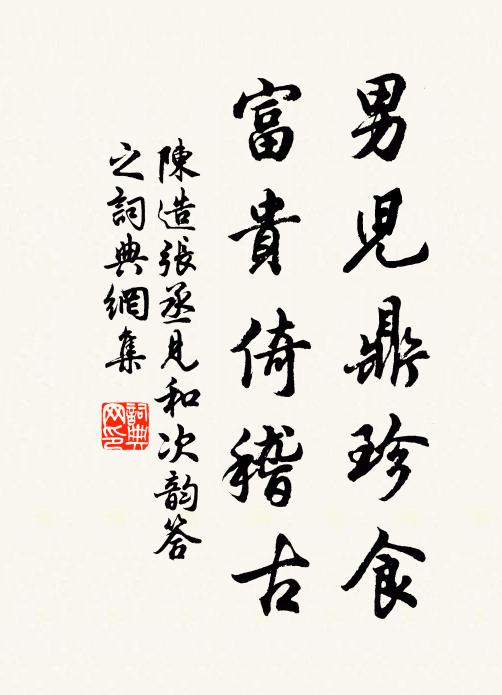 男児鼎珍食
富貴倚稽古
陳造張丞見和次韵答
之詞典網集
詞典
网印